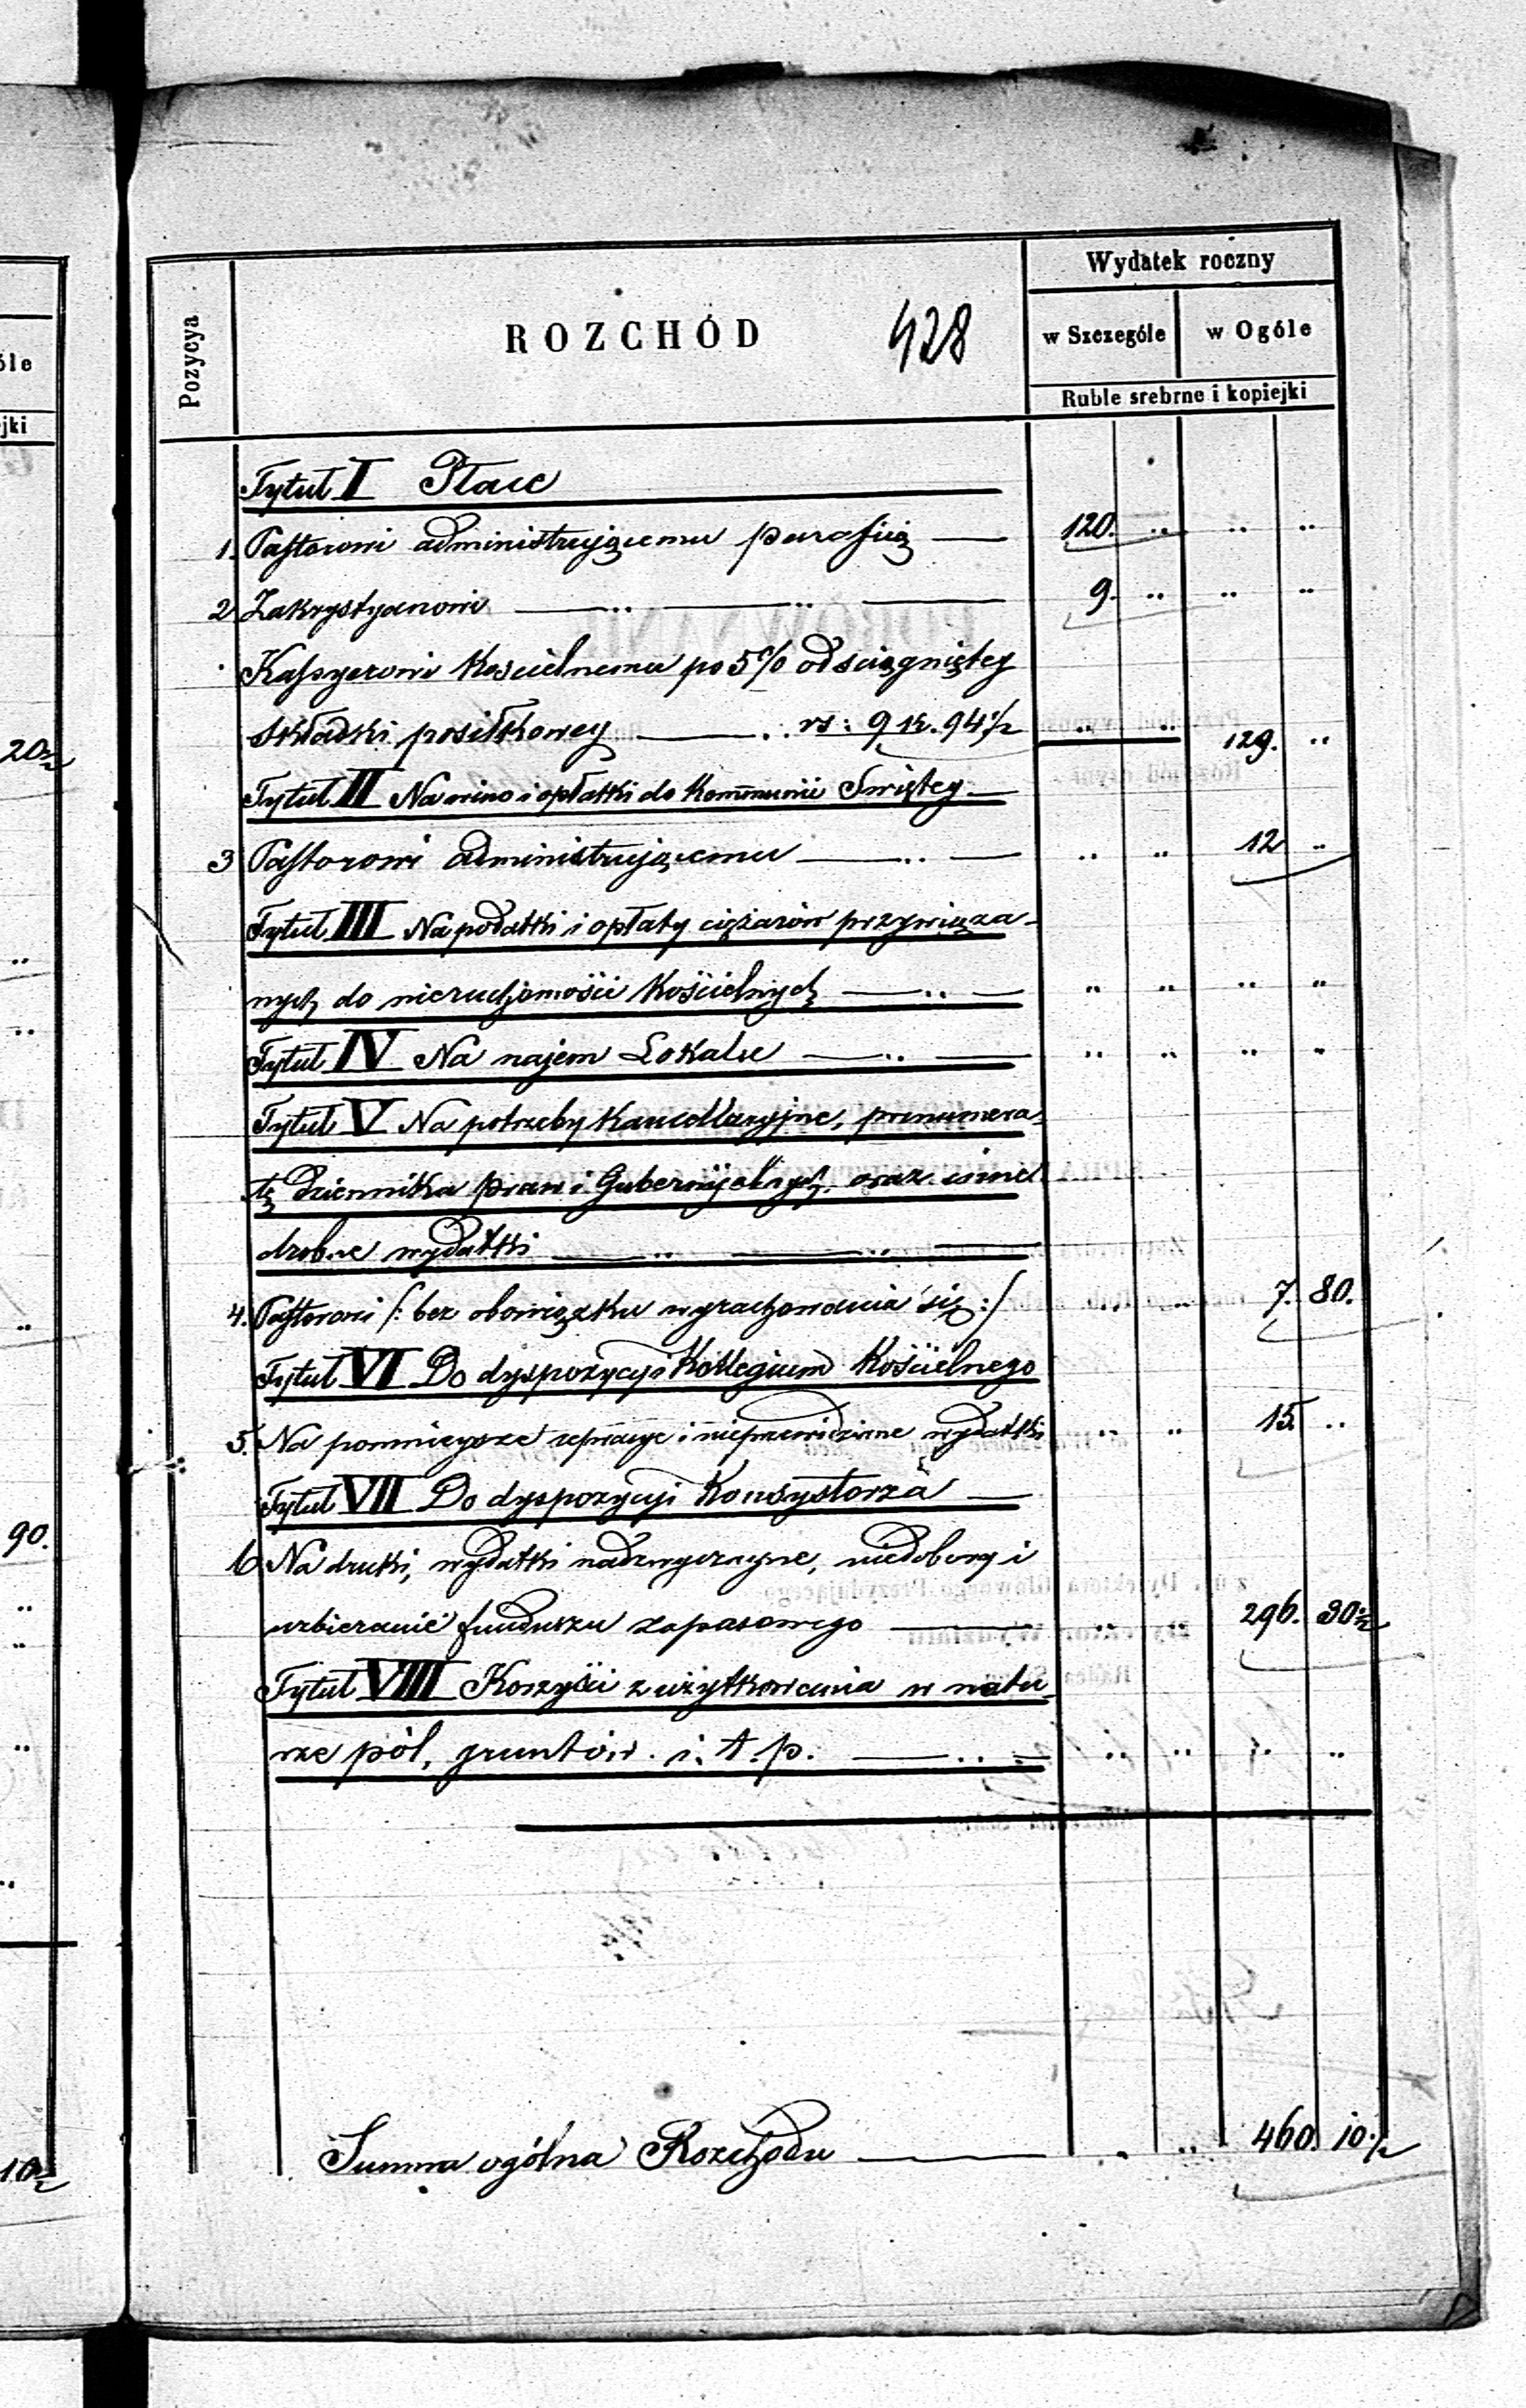 Wydatek roczny
Pozycya
ROZCHÓD
428
w Szczególe
w Ogóle
óle
Ruble srebrne i kopiejki
jki
Tytuł I Płace
1. Pastorowi administrującemu parafią — 120. .. .. ..
2 Zakrystyanowi — .. — .. — 9. .. .. ..
Kassyerowi Kościelnemu po 5% od ściągniętey
składki posiłkowey — .. rs: 9 k. 94½ .. .. 129. ..
20½
Tytuł II Na wino i opłatki do Kommunii Swiętey —
3 Pastorowi administrującemu — .. — .. .. 12 ..
Tytuł III Na podatki i opłaty ciężarów przywiąza-
nych do nieruchomości Kościelnych — .. — .. .. .. ..
Tytuł IV Na najem Lokalu — .. — .. .. .. ..
Tytuł V Na potrzeby Kancellaryjne, prenumera-
tę Dziennika praw i Gubernijalnych, oraz inne
drobne wydatki — .. — .. —
4. Pastorowi /: bez obowiązku wyrachowania się :/ .. .. 7. 80.
Tytuł VI Do dyspozycyi Kollegium Kościelnego
5. Na pomnieysze reperacye i nieprzewidziane wydatki .. .. 15. ..
Tytuł VII Do dyspozycyi Konsystorza —
90.
6 Na druki, wydatki nadzwyczayne, niedobory i
uzbieranie funduszu zapasowego — .. .. 296. 30½
Tytuł VIII Korzyści z użytkowania w natu-
rze pól, gruntów i. t. p. — .. — .. .. .. ..
Summa ogólna Rozchodu — .. .. 460. 10½
10½